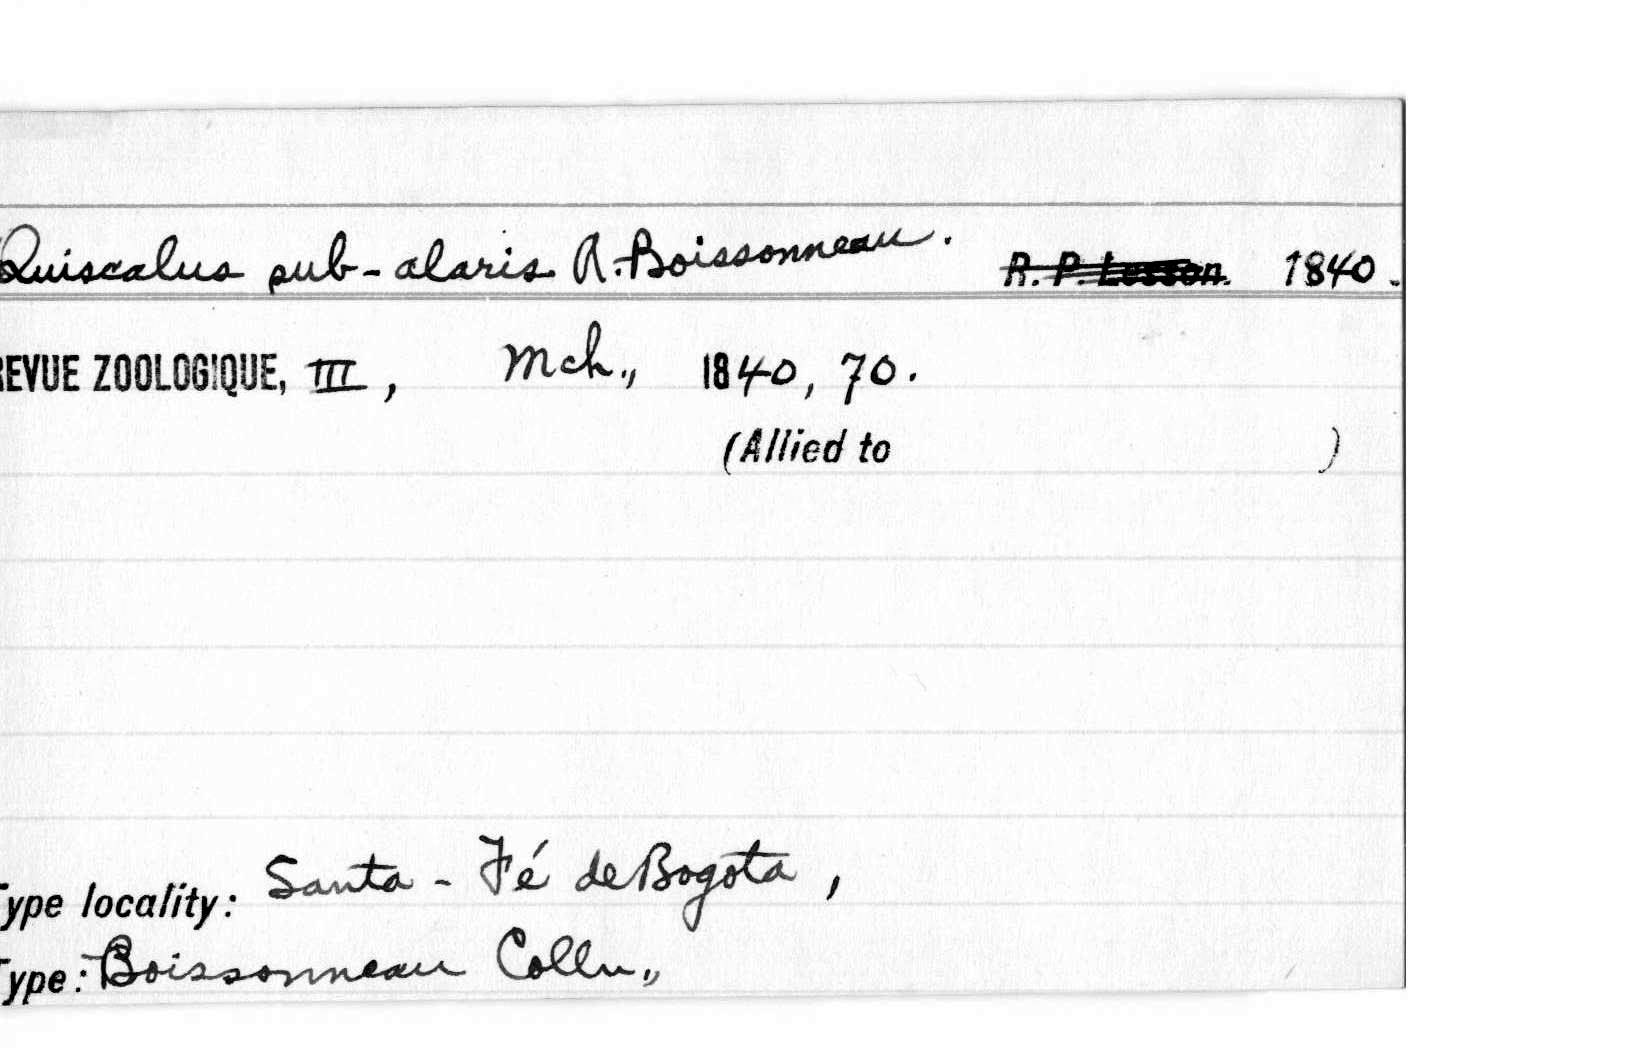 Quiscalus sub-alaris A. Boissonneau. R. P. Lesson. 1840.
REVUE ZOOLOGIQUE, III, Mch., 1840, 70.
(Allied to )
Type locality: Santa-Fé de Bogota,
Type: Boissonneau Colln.,